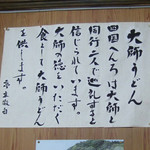 大師うどん
四国へんろは大師と
同行二人で巡礼すると
信じられています。
大師の徳をいただく
食として大師うどん
を供します。